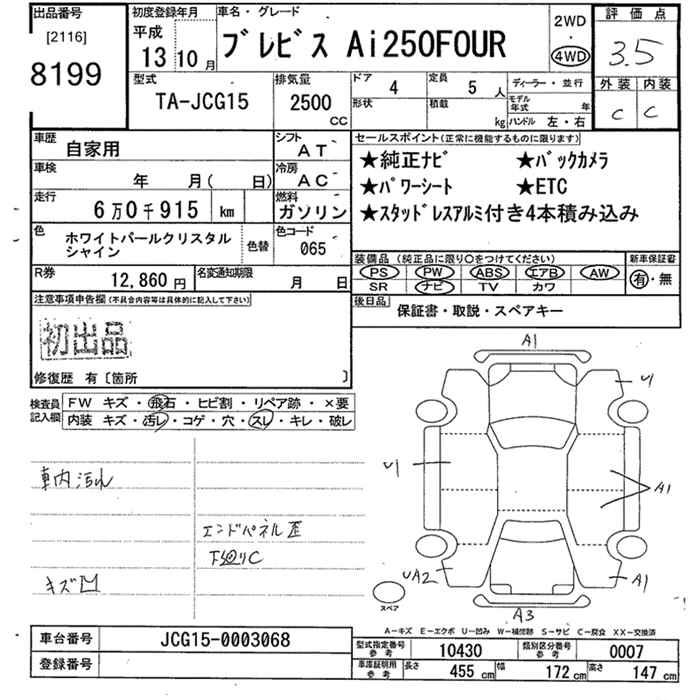 出品番号
[2116]
8199
初度登録年月
平成
13年10月
車名・グレード
ブレビス Ai250FOUR
2WD
・
4WD
評価点
3.5
外装 内装
C C
型式
TA-JCG15
排気量
2500
CC
ドア 4
定員 5人
形状
積載 kg
ディーラー・並行
モデル年式 年
ハンドル 左・右
車歴
自家用
シフト
AT
車検
年 月( 日)
冷房
AC
走行
6万0千915 km
燃料
ガソリン
色
ホワイトパールクリスタル
シャイン
色替
色コード
065
R券
12,860円
名変通知期限
月 日
セールスポイント(正常に機能するものに限ります)
★純正ナビ ★バックカメラ
★パワーシート ★ETC
★スタッドレスアルミ付き4本積み込み
装備品 (純正品に限り○をつけてください)
新車保証書
PS PW ABS エアB AW
SR ナビ TV カワ
有・無
後日品
保証書・取説・スペアキー
注意事項申告欄(不具合内容等は具体的に記入して下さい)
初出品
修復歴 有〔箇所 〕
検査員
記入欄
FW キズ・飛石・ヒビ割・リペア跡・×要
内装 キズ・汚レ・コゲ・穴・スレ・キレ・破レ
車内汚れ
エンドパネル歪
下廻りC
キズ凹
A1
U
U
A1
UA2
A1
A3
スペア
A−キズ E−エクボ U−凹み W−補修跡 S−サビ C−腐食 XX−交換済
車台番号
JCG15-0003068
登録番号
型式指定番号
参考
10430
類別区分番号
参考
0007
車庫証明用
参考
長さ 455 cm
幅 172 cm
高さ 147 cm